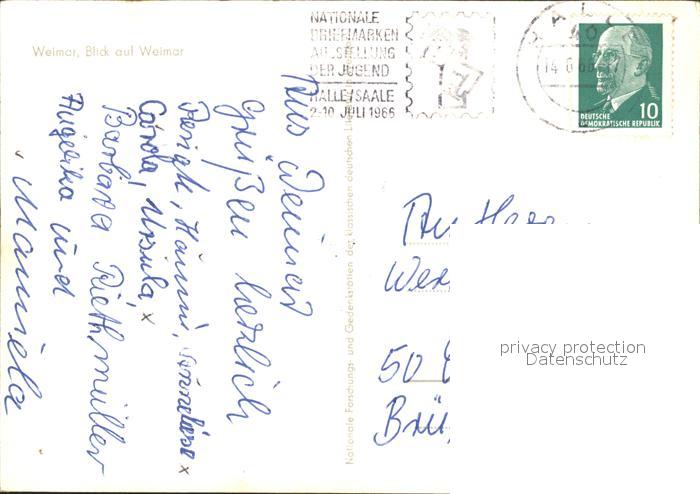 Weimar, Blick auf Weimar
NATIONALE
BRIEFMARKEN
AUSSTELLUNG
DER JUGEND
HALLE/SAALE
2-10. JULI 1966
10
DEUTSCHE
DEMOKRATISCHE REPUBLIK
Aus Weimar
grüßen herzlich
Hanni,
Carola, Ursula, x
Barbara Riethmüller
Angelika und
Manuela
Nationale Forschungs- und Gedenkstätten der klassischen deutschen
50
privacy protection
Datenschutz